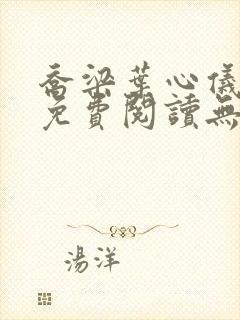 喬梁葉心儀
免費閱讀無
湯洋